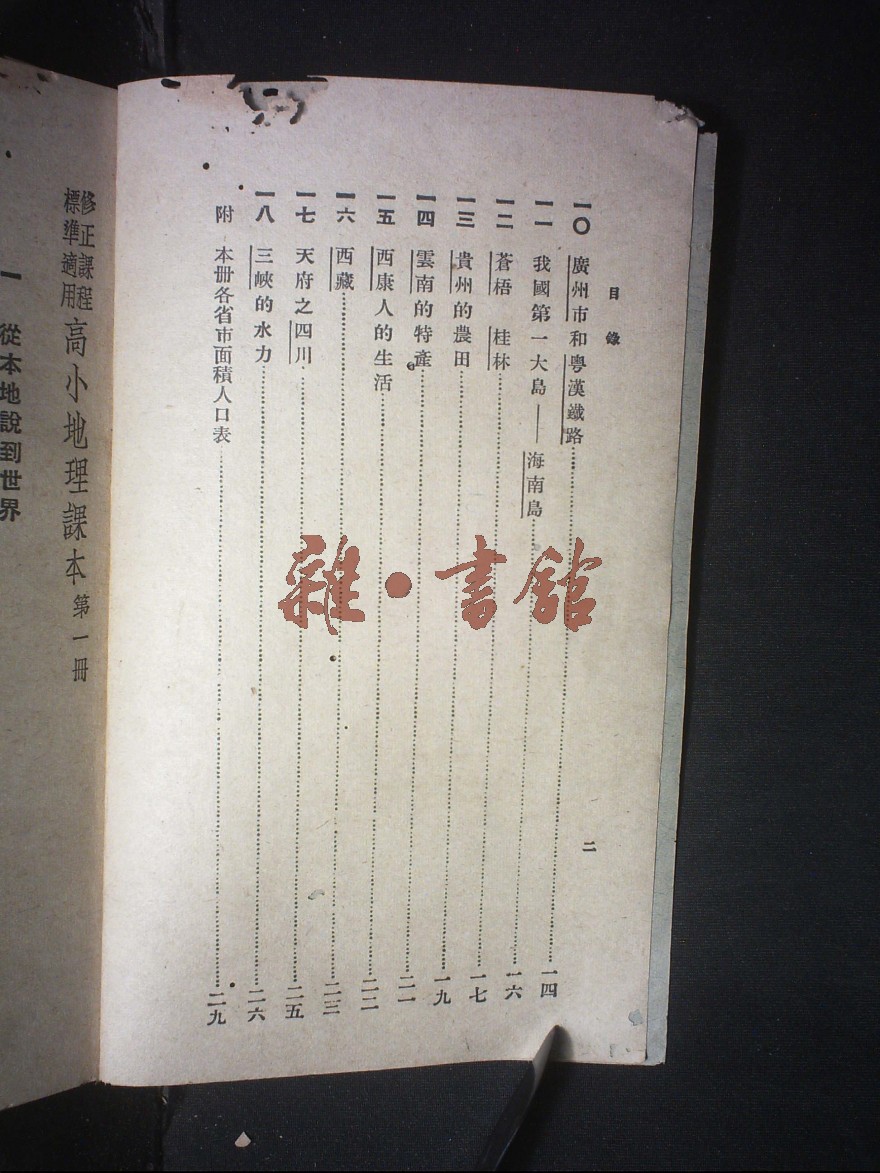 目錄
一〇 廣州市和粵漢鐵路……一四
一一 我國第一大島——海南島……一六
一二 蒼梧 桂林……一七
一三 貴州的農田……一九
一四 雲南的特產……二一
一五 西康人的生活……二二
一六 西藏……二三
一七 天府之四川……二五
一八 三峽的水力……二六
附 本册各省市面積人口表……二九
二
修正課程
標準適用
高小地理課本 第一冊
一 從本地說到世界
雜·書館